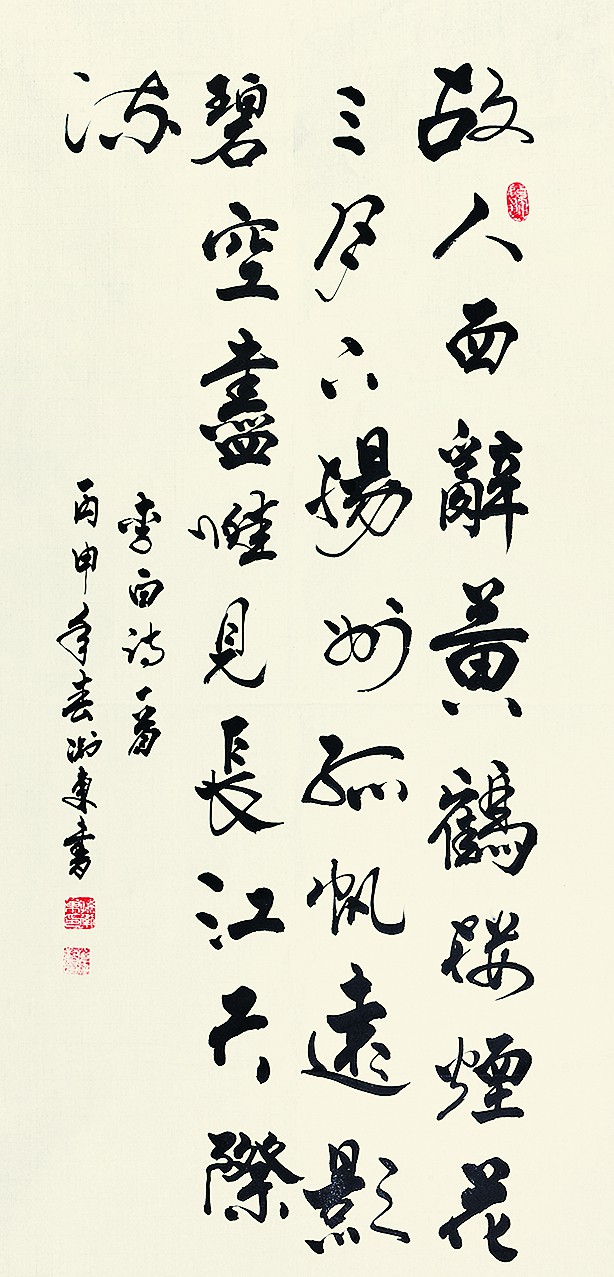 故人西辭黄鶴樓煙花
三月下揚州孤帆遠影
碧空盡惟見長江天際
流
李白詩一首
丙申年春東書